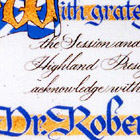 With grate
the Session and
Highland Pres
acknowledge with
Dr Robe